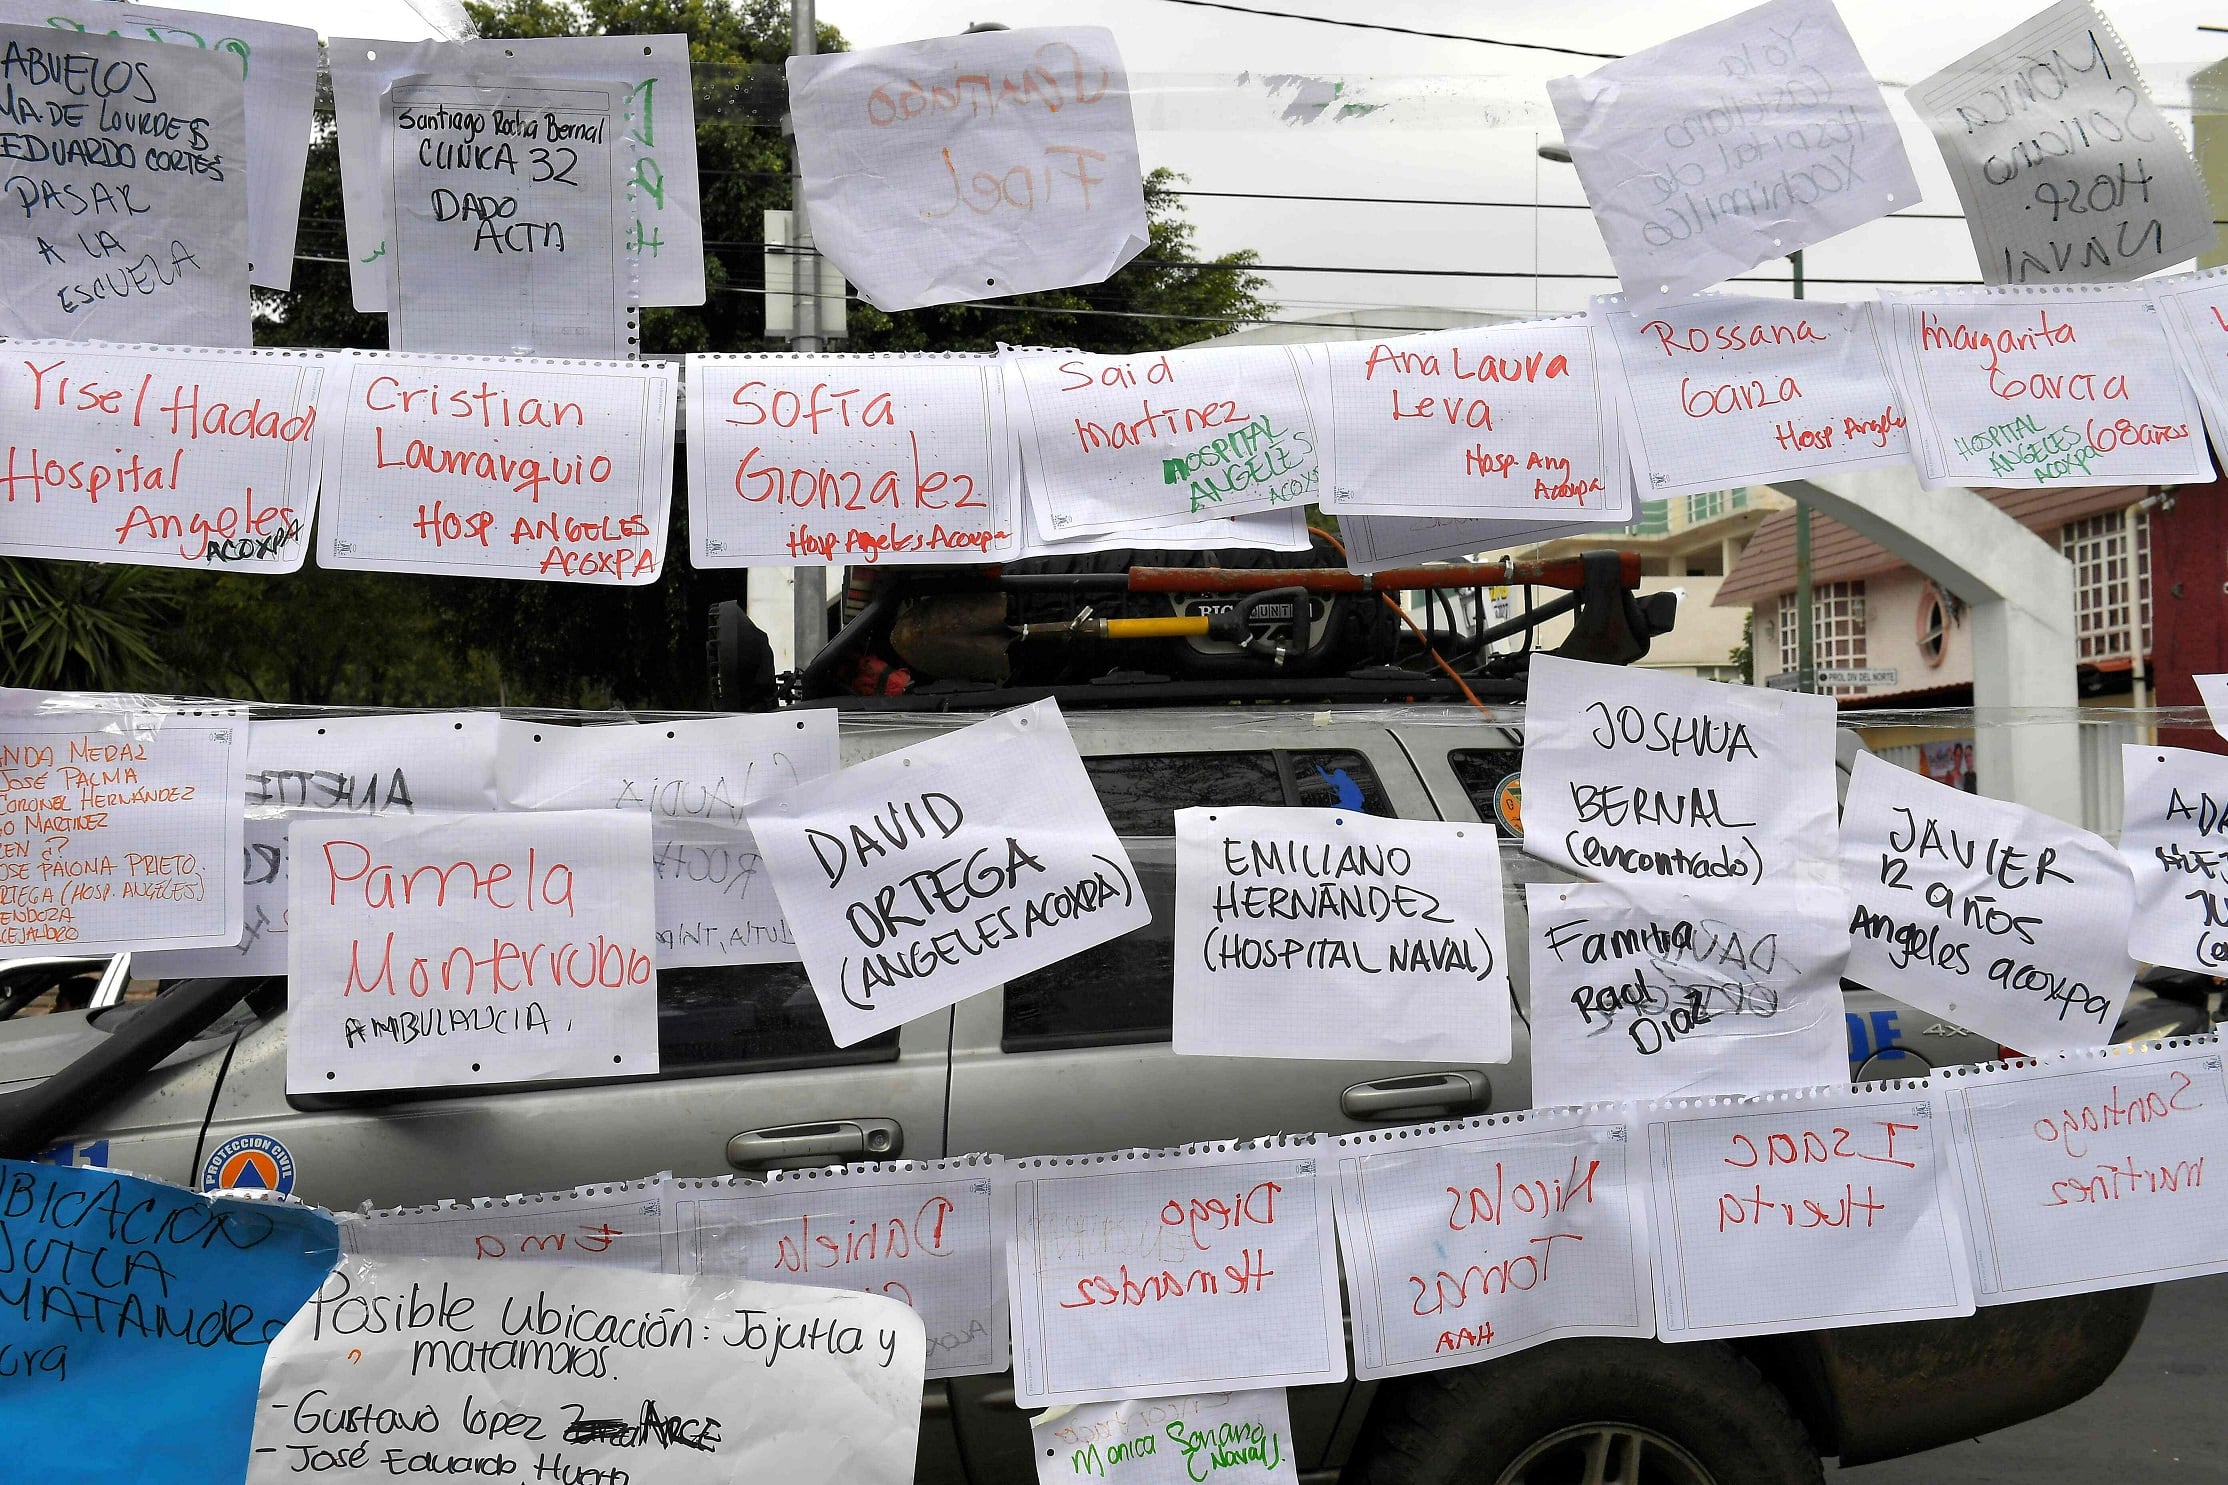 ABUELOS
MA DE LOURDES
EDUARDO CORTES
PASAR
A LA
ESCUELA
Santiago Rocha Bernal
CLINICA 32
DADO
ACTA
Santiago
Fidel
Yola
Castellano
Hospital de
Xochimilco
MÓNICA
Soriano
HOSP.
NAVAL
Yisel Hadad
Hospital
Angeles
ACOXPA
Cristian
Laurrarquio
HOSP ANGELES
ACOXPA
SOFÍA
González
Hosp Angeles Acoxpa
Said
martínez
HOSPITAL
ANGELES
ACOXP
Ana Laura
Leva
Hosp. Ang
Acoxpa
Rossana
Garza
Hosp Angeles
Margarita
García
HOSPITAL
ÁNGELES
ACOXPA
68 años
BIG COUNTRY
PROL DIV DEL NORTE
ANDA MERAZ
JOSÉ PALMA
CORONEL HERNÁNDEZ
GO MARTINEZ
EN ¿?
OSE PALOMA PRIETO.
RTEGA (HOSP. ANGELES)
ENDOZA
LEJANDRO
ANETTE
CLAUDIA
Pamela
Monterrubio
AMBULANCIA.
DAVID
ORTEGA
(ANGELES ACOXPA)
EMILIANO
HERNÁNDEZ
(HOSPITAL NAVAL)
JOSHUA
BERNAL
(encontrado)
Familia
Raul
Diaz
JAVIER
12 años
Angeles acoxpa
4x4
PROTECCION CIVIL
UBICACIÓN
JUTLA
MATAMORO
Ema
Daniela
Diego
Hernández
Nicolas
Tomás
HAA
Isaac
Huerta
Santiago
martínez
Posible ubicación: Jojutla y
matamoros.
- Gustavo lopez ARCE
- José Eduardo Huerta
Monica Soriano
(Naval).